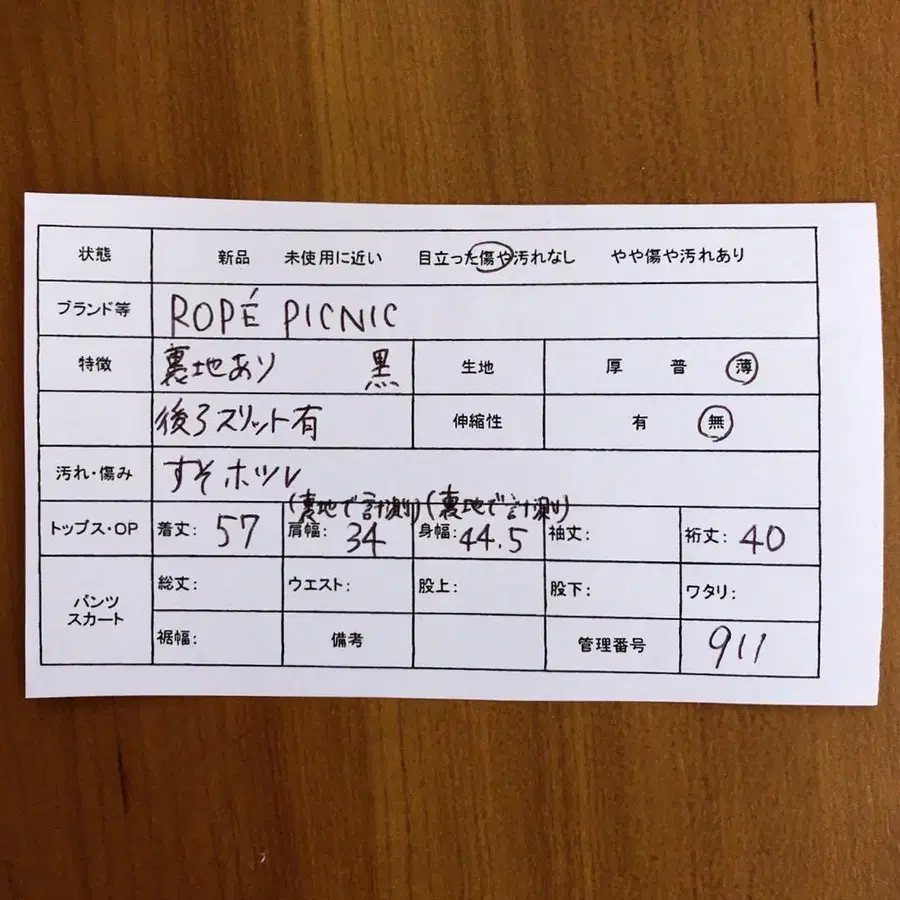 状態 新品 未使用に近い 目立った傷や汚れなし やや傷や汚れあり
ブランド等 ROPÉ PICNIC
特徴 裏地あり 黒 生地 厚 普 薄
後ろスリット有 伸縮性 有 無
汚れ・傷み すそホツレ
(裏地で計測) (裏地で計測)
トップス・OP 着丈: 57 肩幅: 34 身幅: 44.5 袖丈: 裄丈: 40
パンツ スカート 総丈: ウエスト: 股上: 股下: ワタリ:
裾幅: 備考 管理番号 911